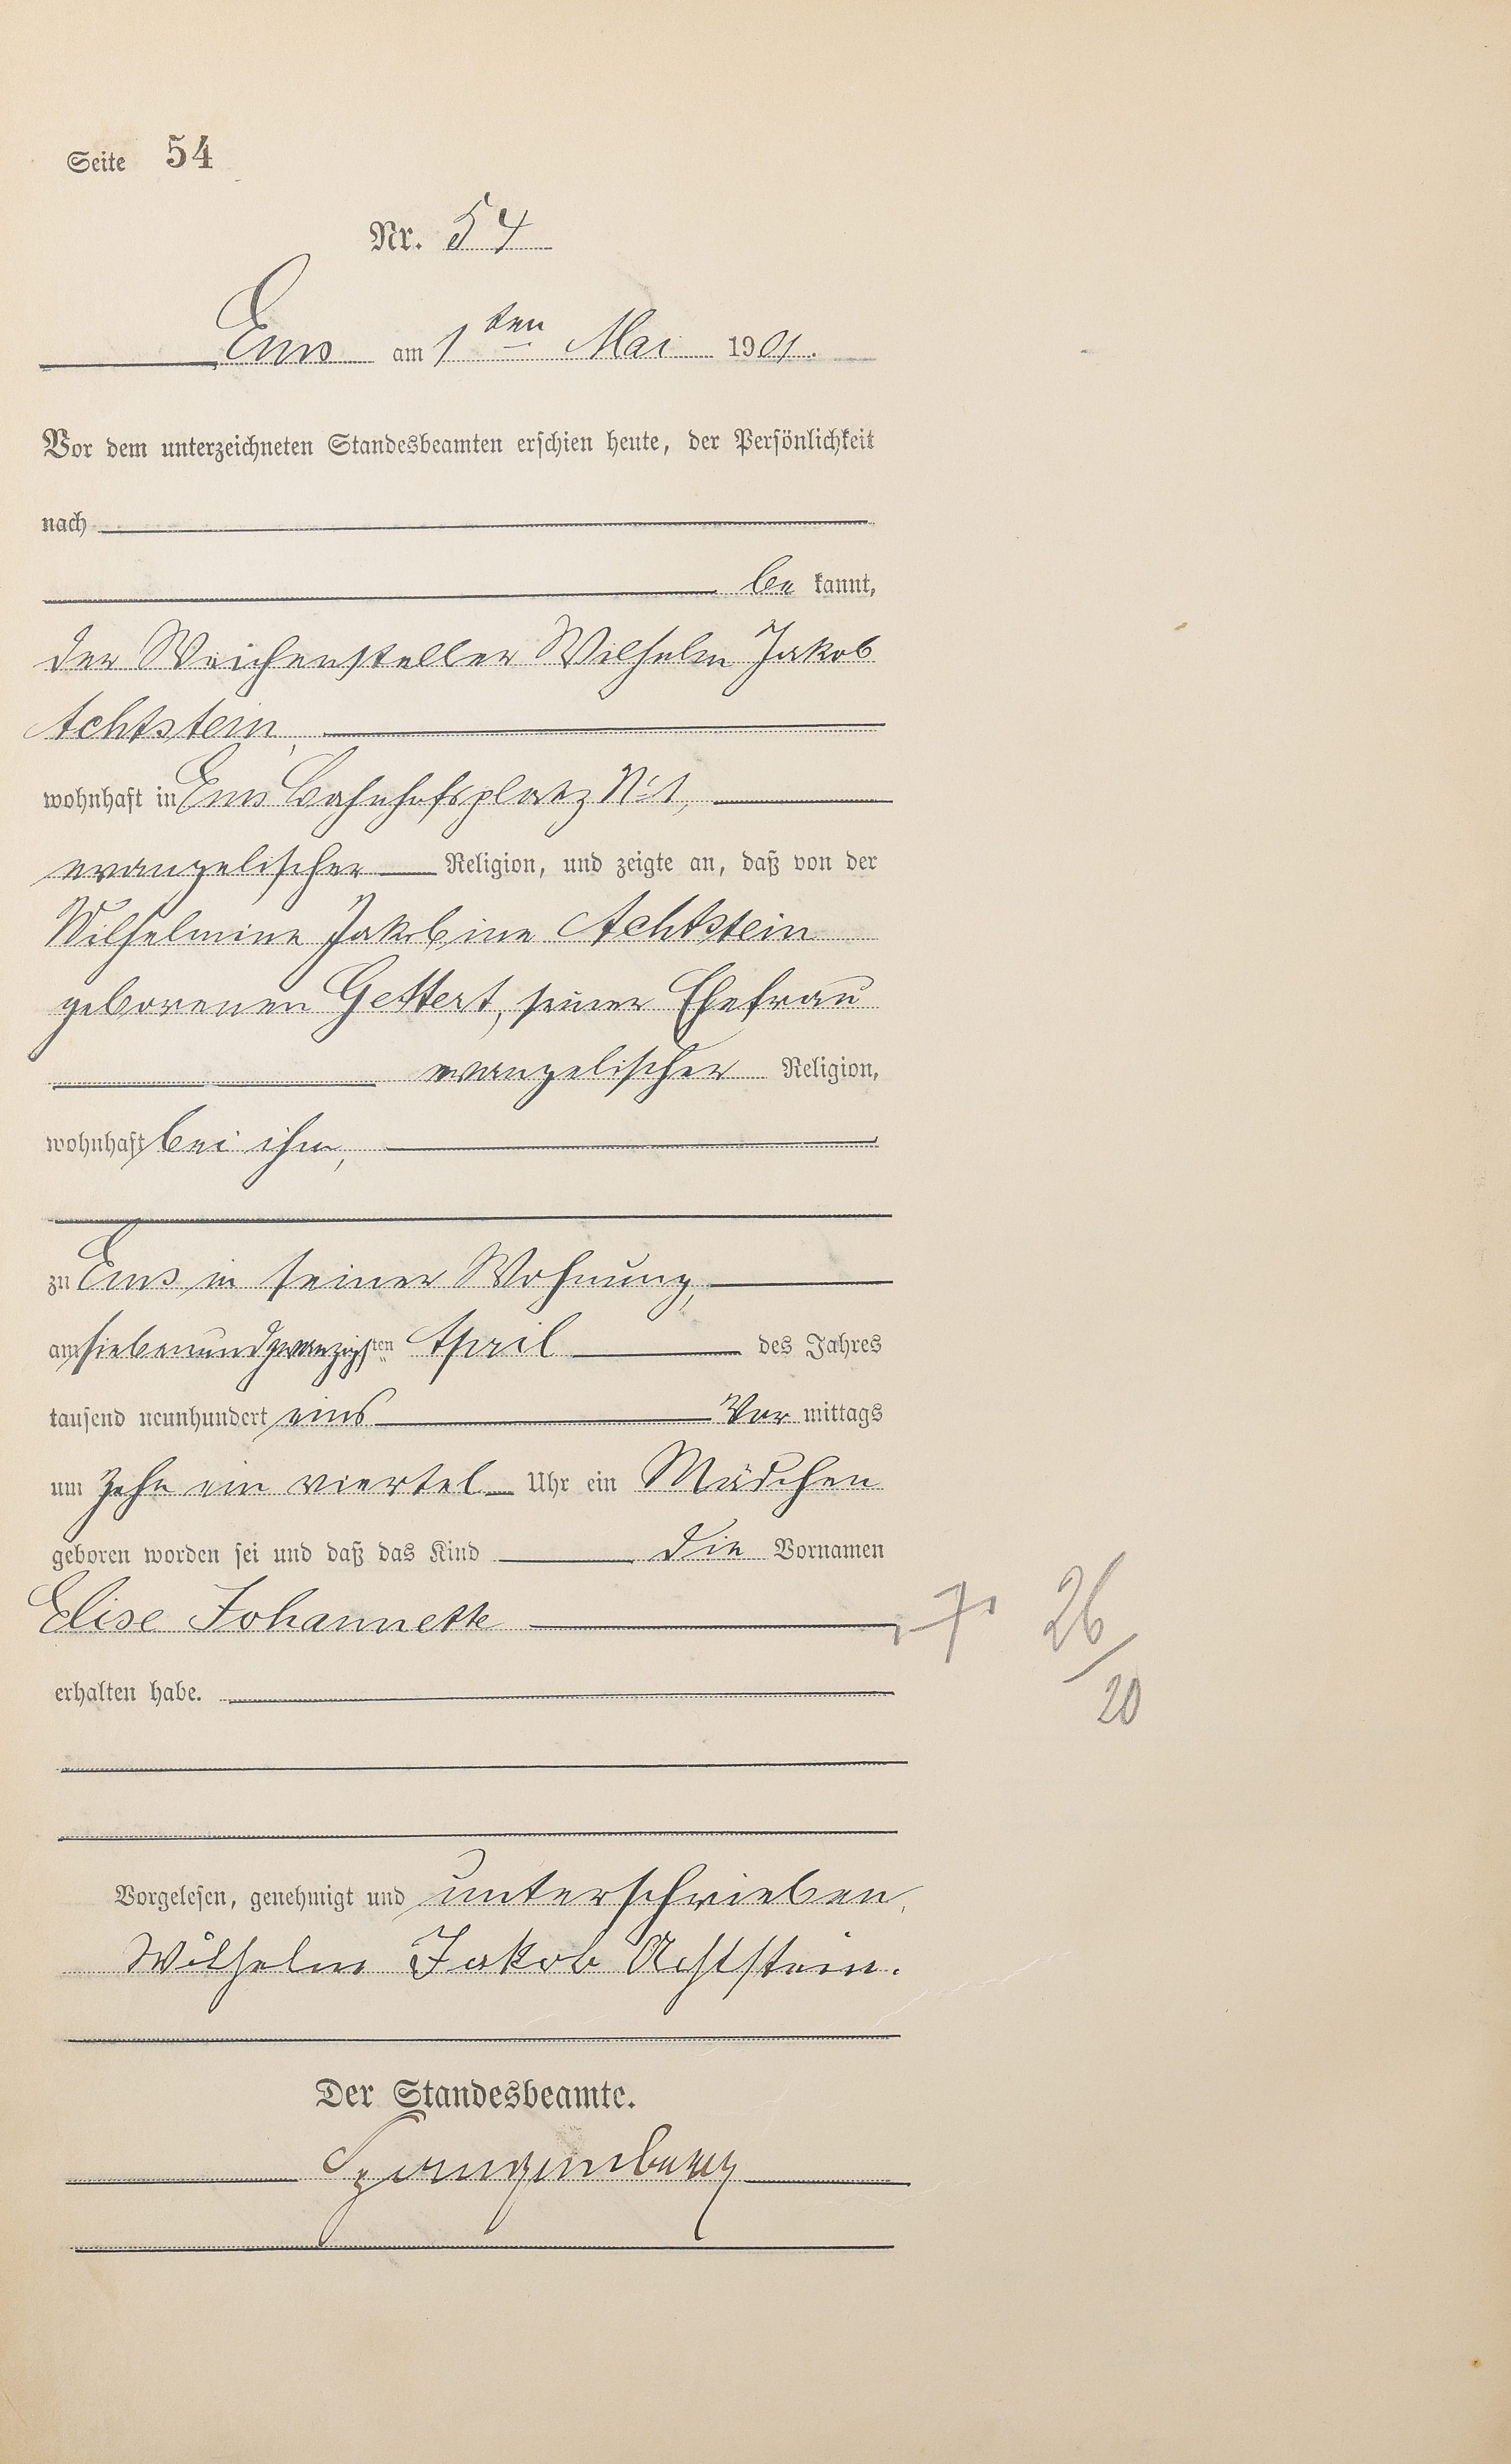 Seite 54
Nr. 54
Ems am 1ten Mai 1901.
Vor dem unterzeichneten Standesbeamten erschien heute, der Persönlichkeit
nach
be kannt,
der Weichensteller Wilhelm Jakob
Achtstein,
wohnhaft in Ems Bahnhofsplatz No 1,
evangelischer Religion, und zeigte an, daß von der
Wilhelmine Jakobine Achtstein
geborenen Gettert, seiner Ehefrau
evangelischer Religion,
wohnhaft bei ihm,
zu Ems in seiner Wohnung,
am siebenundzwanzigsten April des Jahres
tausend neunhundert eins Vor mittags
um zehn ein viertel Uhr ein Mädchen
geboren worden sei und daß das Kind die Vornamen
Elise Johannette
26/20
erhalten habe.
Vorgelesen, genehmigt und unterschrieben,
Wilhelm Jakob Achtstein.
Der Standesbeamte.
Spangenberg